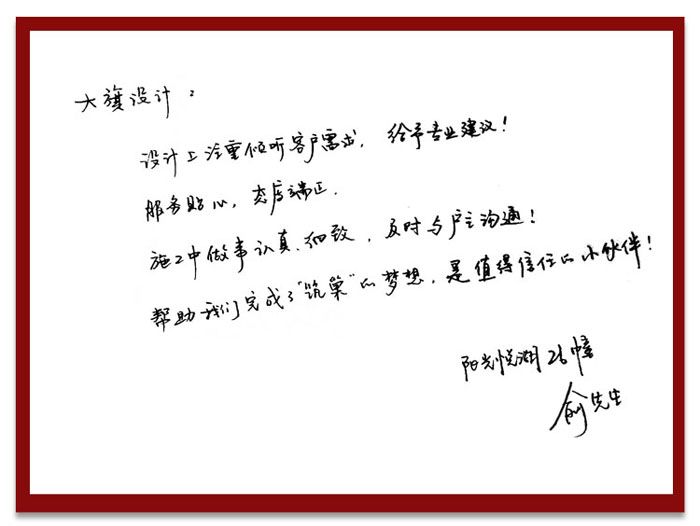 大旗设计：
设计上注重倾听客户需求，给予专业建议！
服务贴心，态度端正．
施工中做事认真、细致，及时与户主沟通！
帮助我们完成了“筑巢”的梦想，是值得信任的小伙伴！
阳光悦湖26幢
俞先生